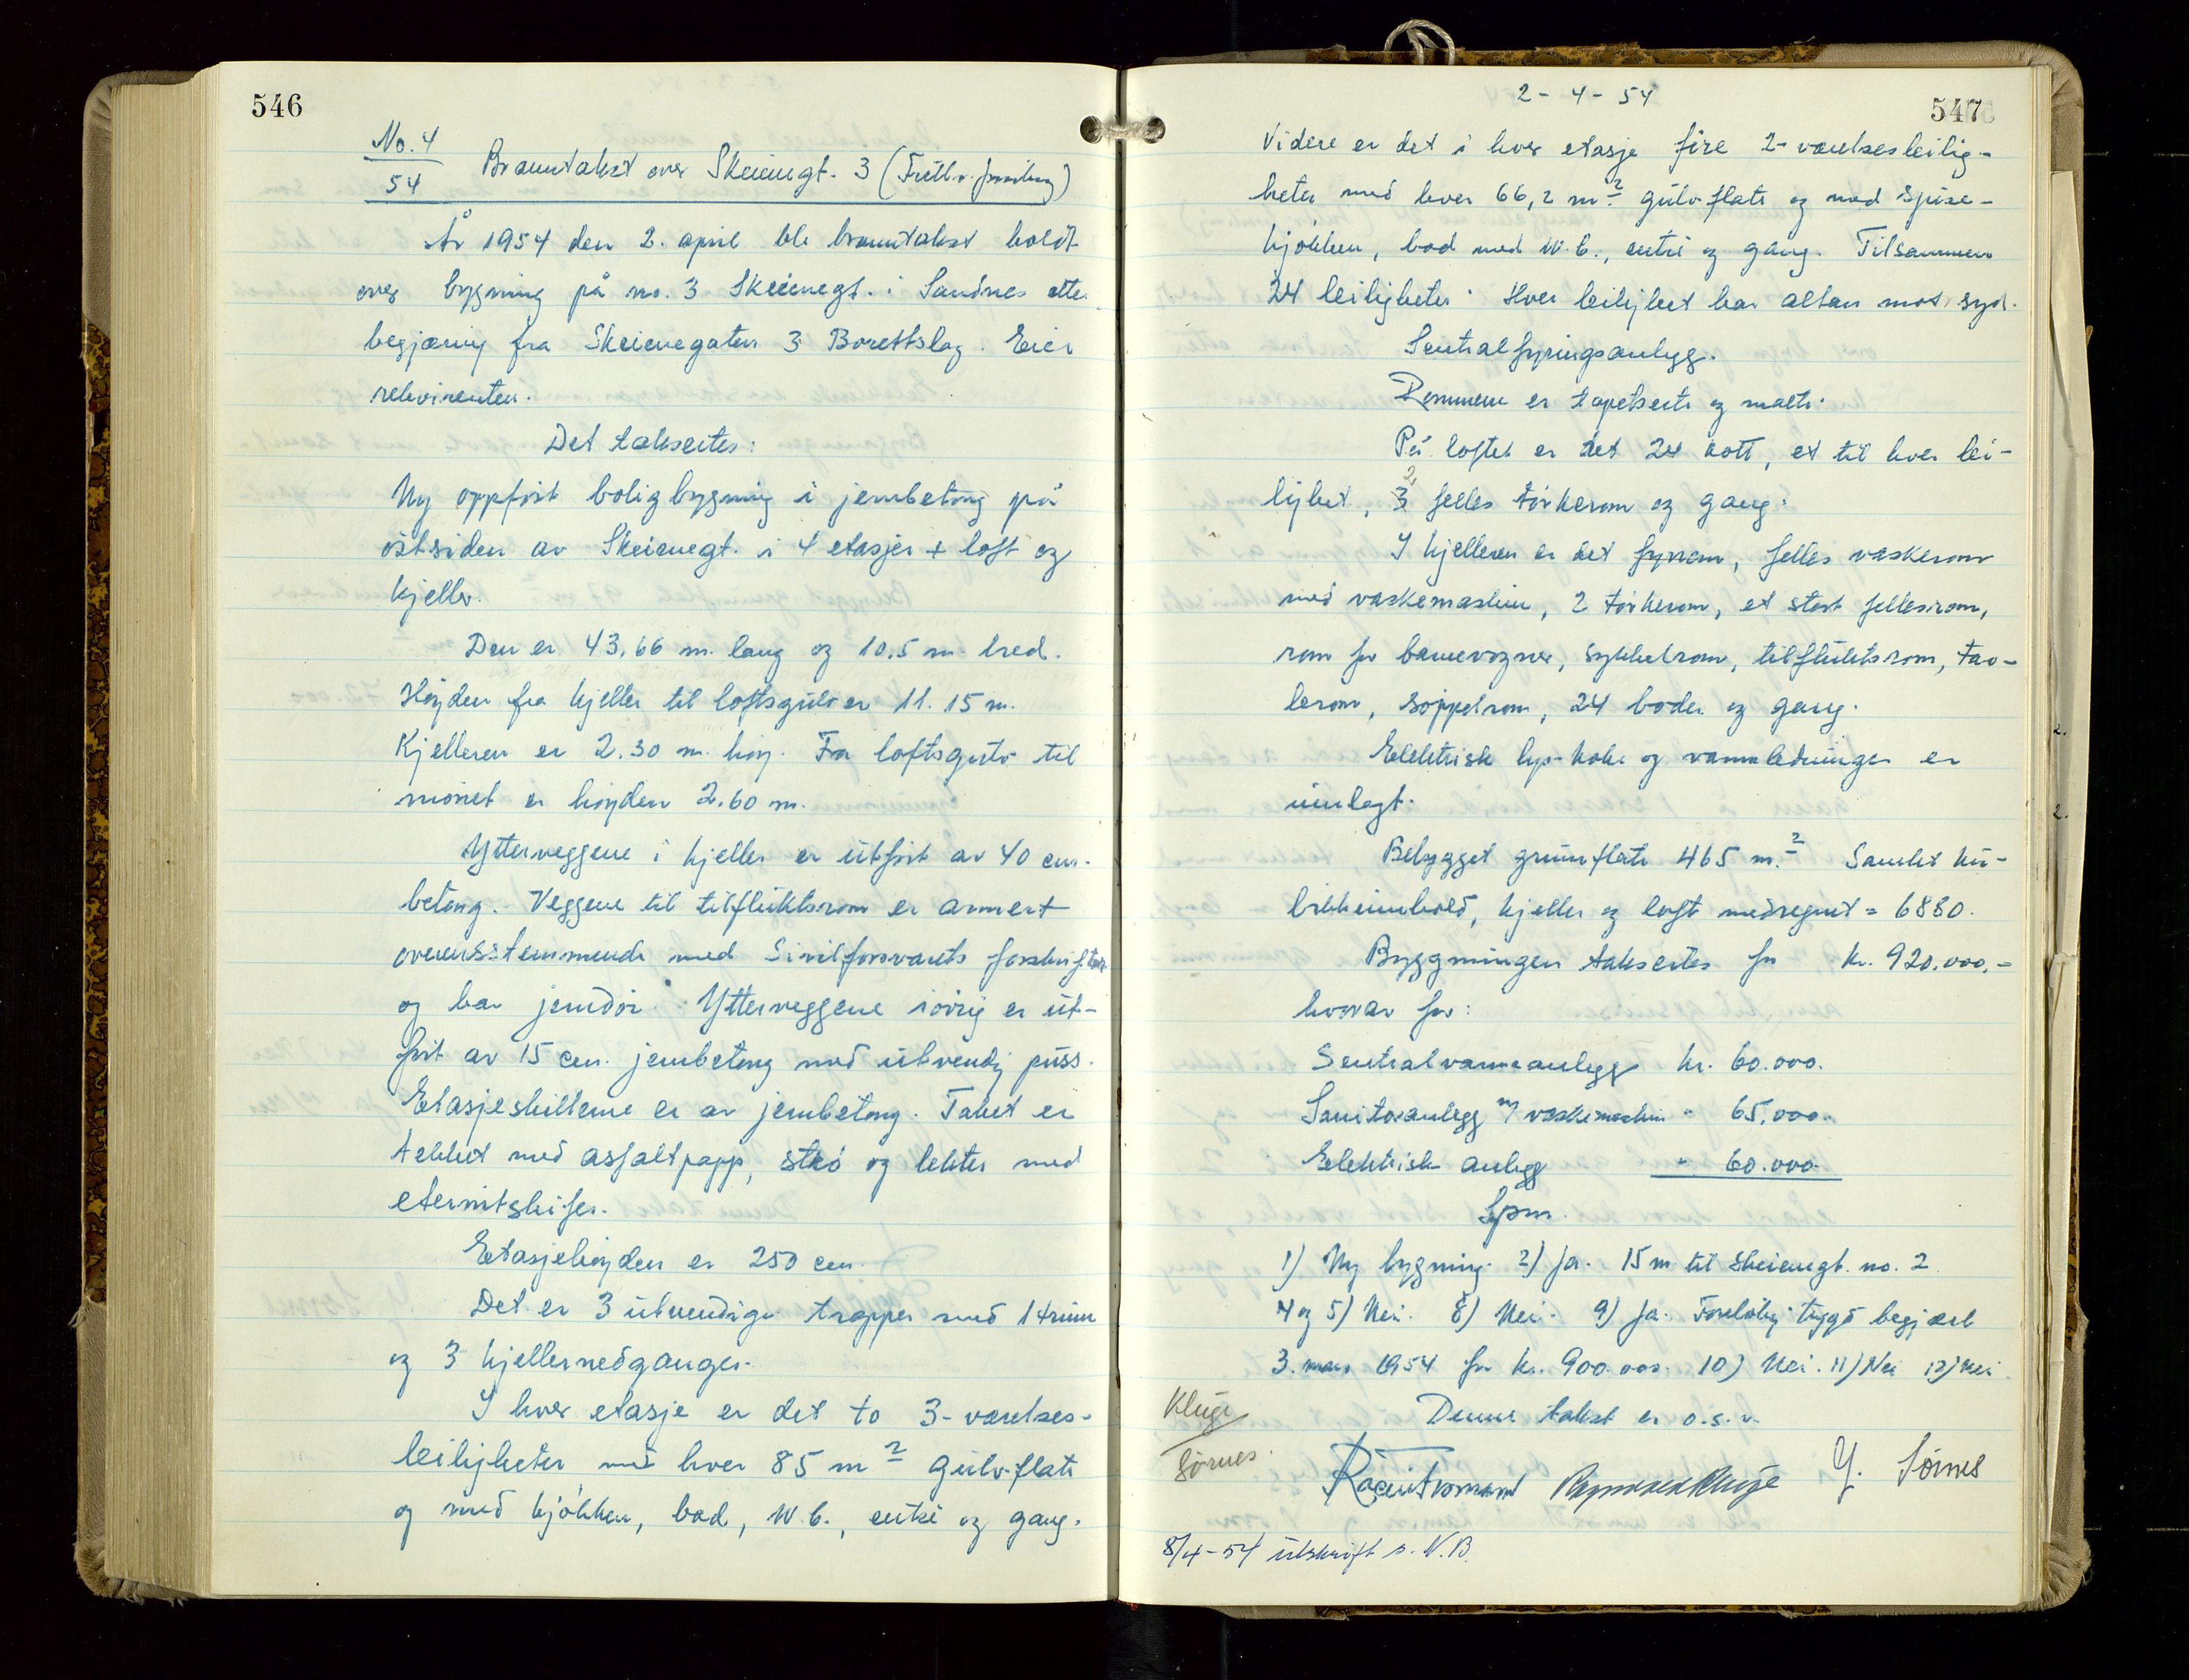 546
No. 4
54
Branntakst over Skeiengt. 3 (Fullv. forsikring)
År 1954 den 2. april ble branntakst holdt
over bygning på no. 3 Skeienegt. i Sandnes etter
begjæring fra Skeienegaten 3 Borettslag. Eier
rekvirenten.
Det takseertes:
Ny oppført boligbygning i jernbetong på
østsiden av Skeienegt. i 4 etasjer + loft og
kjeller.
Den er 43,66 m. lang og 10.5 m. bred.
Høyden fra kjeller til loftsgulv er 11.15 m.
Kjelleren er 2.30 m. høy. Fra loftsgulv til
mønet er høyden 2.60 m.
Ytterveggene i kjeller er utført av 40 cm.
betong. Veggene til tilfluktsrom er armert
overensstemmende med Sivilforsvarets forskrifter
og har jerndør. Ytterveggene iøvrig er ut-
ført av 15 cm. jernbetong med utvendig puss.
Etasjeskillerne er av jernbetong. Taket er
tekket med asfaltpapp, strø og lekter med
eternitskifer.
Etasjehøyden er 250 cm.
Det er 3 utvendige trapper med 1 trinn
og 3 kjellernedganger.
I hver etasje er det to 3-værelses-
leiligheter med hver 85 m2 gulvflate
og med kjøkken, bad, W.C., entré og gang.
2-4-54
547
Videre er det i hver etasje fire 2-værelsesleilig-
heter med hver 66,2 m2 gulvflate og med spise-
kjøkken, bad med W.C., entré og gang. Tilsammen
24 leiligheter. Hver leilighet har altan mot syd.
Sentralfyringsanlegg.
Rommene er tapetserte og malte.
På loftet er det 24 kott, et til hver lei-
lighet, 2 felles tørkerom og gang.
I kjelleren er det fyrrom, felles vaskerom
med vaskemaskin, 2 tørkerom, et stort fellesrom,
rom for barnevogner, sykkelrom, tilfluktsrom, tav-
lerom, søppelrom, 24 boder og gang.
Elektrisk lys- koke og vannledninger er
innlagt.
Bebygget grunnflate 465 m.2 Samlet ku-
bikkinnhold, kjeller og loft medregnet = 6880.
Byggningen takseertes for kr. 920.000,-
hvorav for:
Sentralvarmeanlegg kr. 60.000.
Sanitæranlegg m/ vaskemaskin " 65.000.
Elektrisk anlegg " 60.000.
Spm.
1) Ny bygning. 2) Ja. 15 m til Skeiengt. no. 2
4 og 5) Nei. 8) Nei. 9) Ja. Foreløbig trygd begjært
3. mars 1954 for kr. 900.000. 10) Nei. 11) Nei 12) Nei.
Denne takst er o.s.v.
Kluge
Sørnes.
Y. Sørnes
8/4-54 utskrift s. N.B.